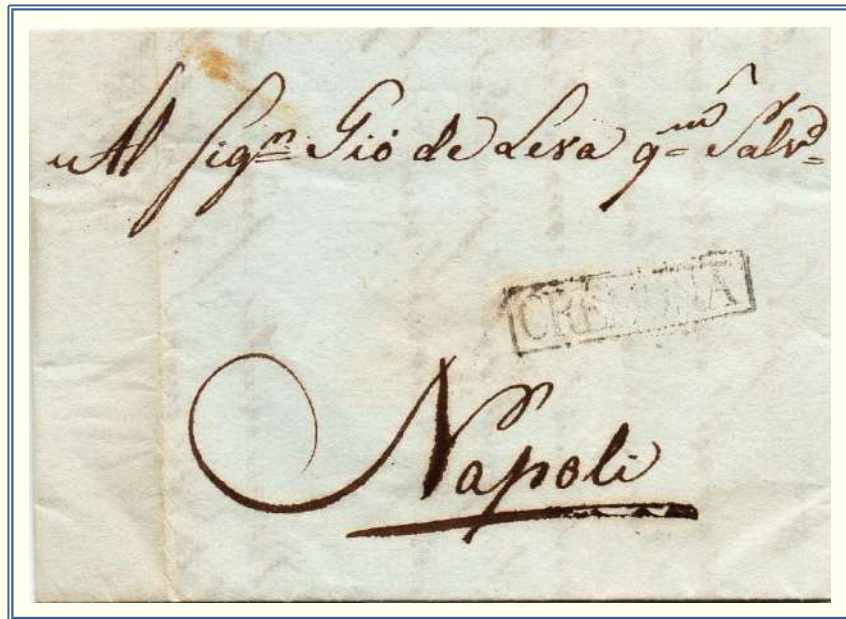 Al Sig.r Gio de Leva q.m Salv.e
CREMONA
Napoli